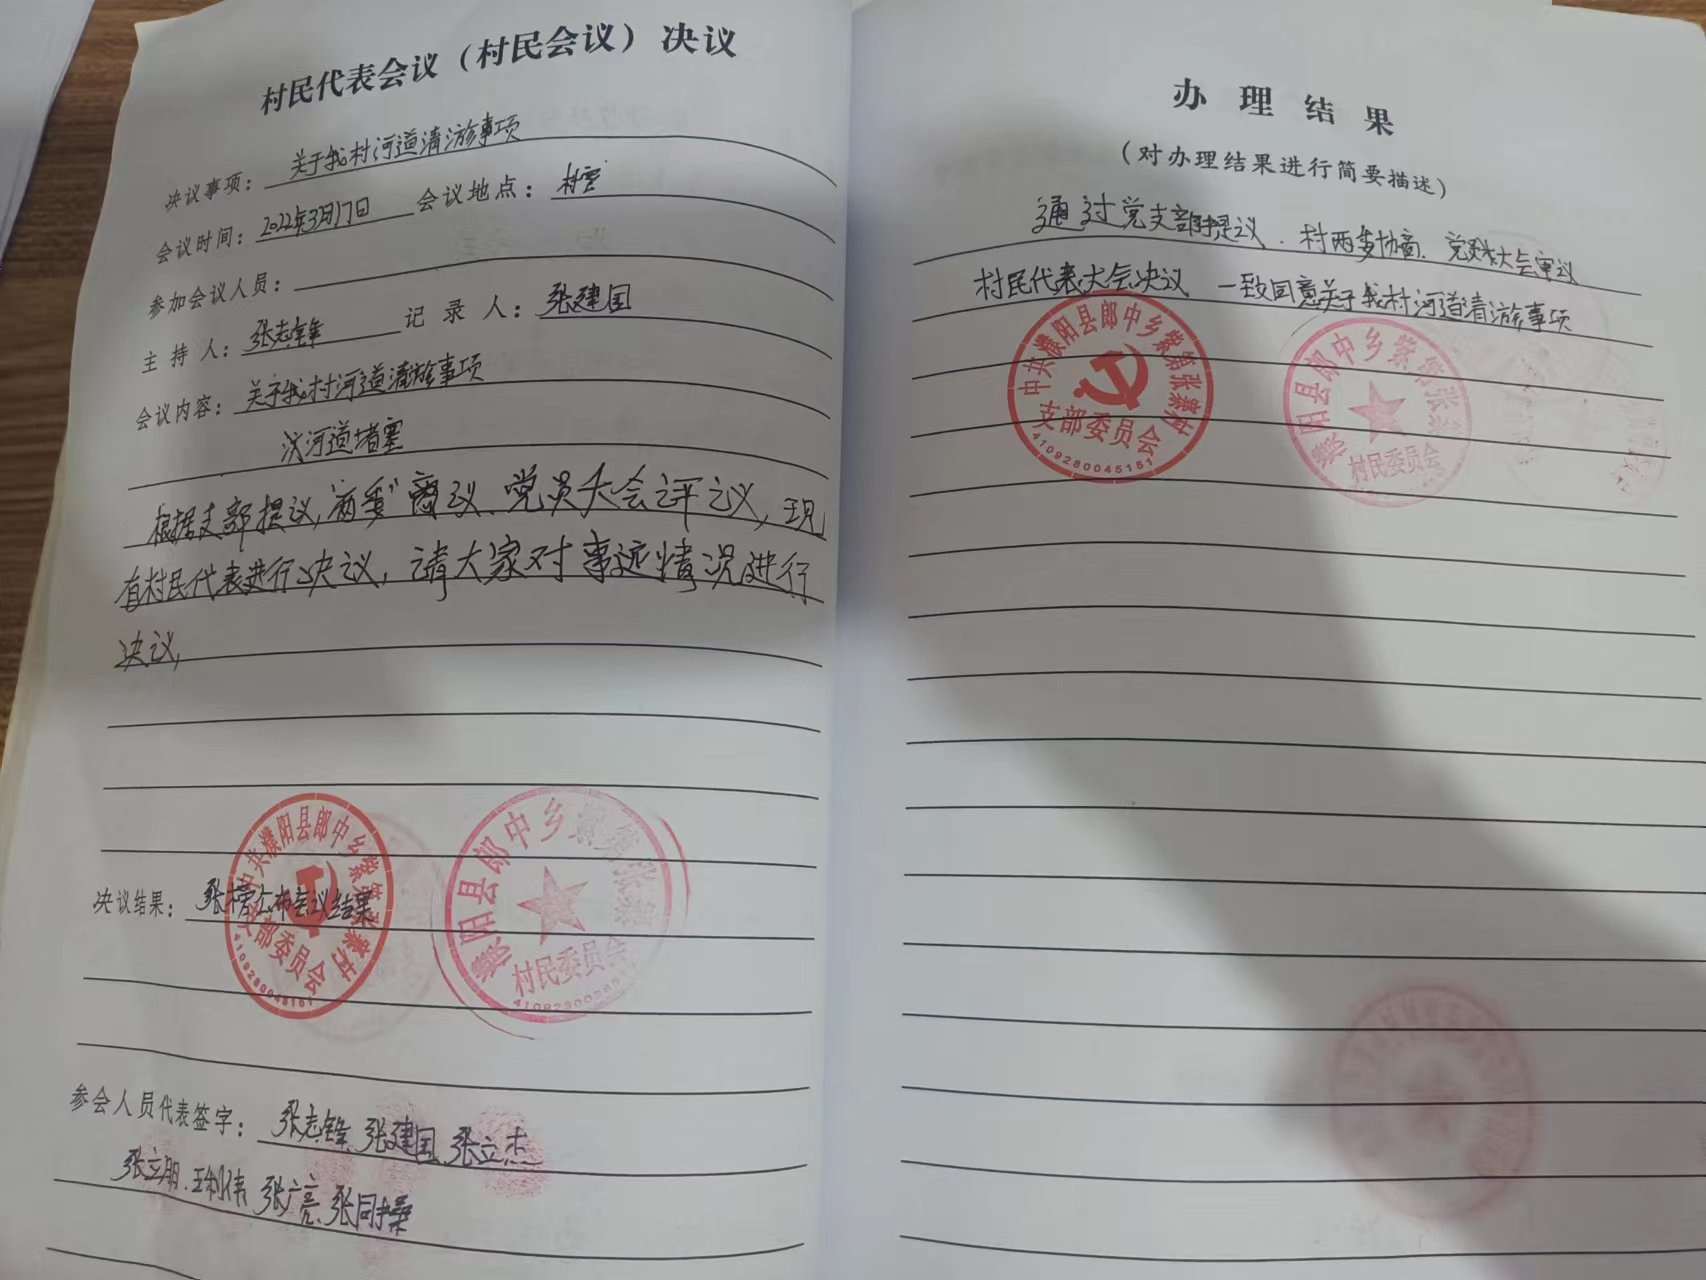 村民代表会议（村民会议）决议
决议事项：关于我村河道清淤事项
会议时间：2022年3月17日 会议地点：村室
参加会议人员：
主持人：张志锋 记录人：张建国
会议内容：关于我村河道清淤事项
河道堵塞
根据支部提议,两委"商议、党员大会评议,现
有村民代表进行决议,请大家对事远情况进行
决议,
中共濮阳县郎中乡紫第张寨村
支部委员会
4109280045151
濮阳县郎中乡紫第张寨
村民委员会
决议结果：张榜公布会议结果
参会人员代表签字：张志锋、张建国、张立杰
张立朋、王利伟、张广亮、张同操
办理结果
（对办理结果进行简要描述）
通过党支部提议、村两委协商、党员大会审议
村民代表大会决议 一致同意关于我村河道清淤事项
中共濮阳县郎中乡紫第张寨村
支部委员会
4109280045151
濮阳县郎中乡紫第张寨
村民委员会